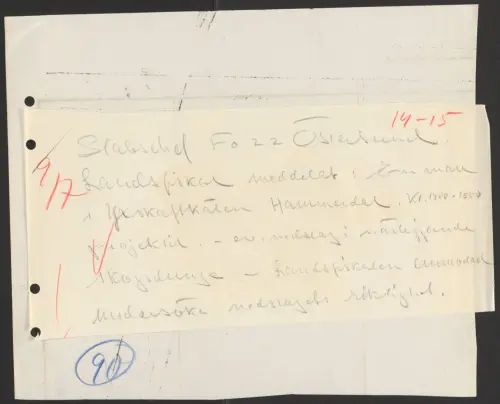 14-15
Stabschef Fo 22 Östersund.
9/7
Landsfiskal meddelat: En man
i Hammerdal. Kl.
projektil. – ev. nedslag i närliggande
skogsdunge – Landsfiskalen anmodad
undersöka nedslagets riktighet.
90